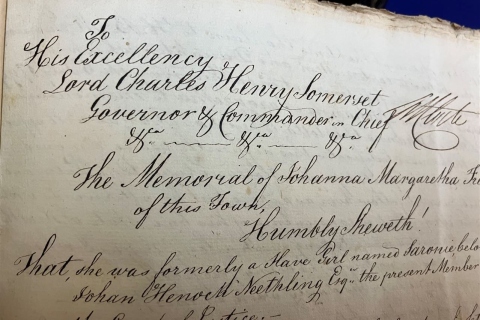 To
His Excellency
Lord Charles Henry Somerset
Governor & Commander in Chief
&ca &ca &ca
The Memorial of Johanna Margaretha
of this Town,
Humbly Sheweth!
That, she was formerly a Slave Girl named Saronie
Johan Henoch Neethling Esqr. the present Member